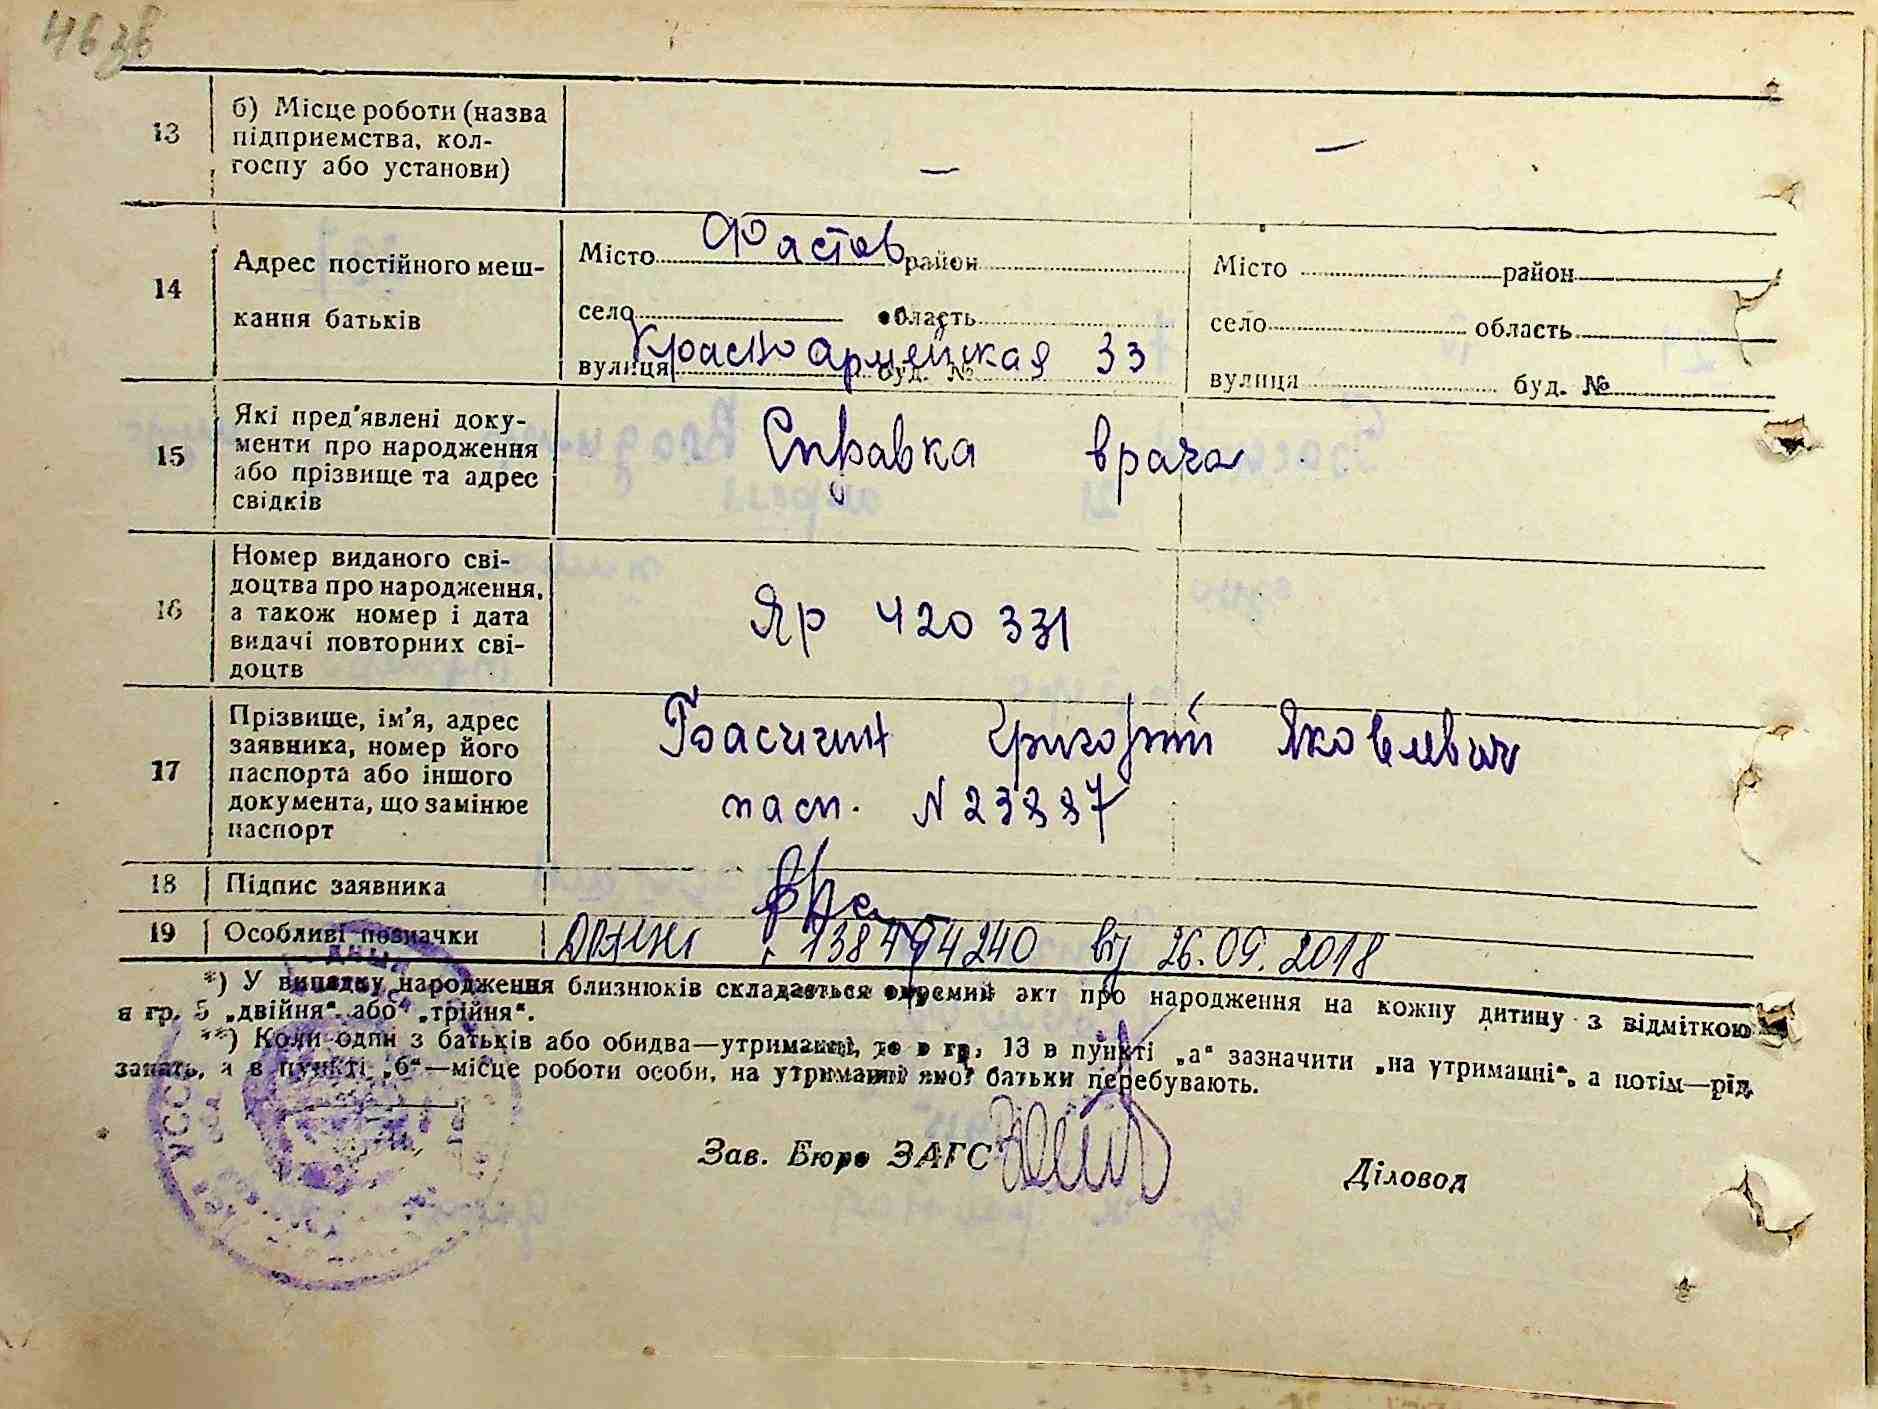 46 зв
13
б) Місце роботи (назва
підприємства, кол-
госпу або установи)
—
—
14
Адрес постійного меш-
кання батьків
Місто Фастов район
село область
вулиця Красноармейская буд. № 33
Місто район
село область
вулиця буд. №
15
Які пред'явлені доку-
менти про народження
або прізвище та адрес
свідків
Справка врача
16
Номер виданого сві-
доцтва про народження,
а також номер і дата
видачі повторних сві-
доцтв
ЯР 420331
17
Прізвище, ім'я, адрес
заявника, номер його
паспорта або іншого
документа, що замінює
паспорт
Григорий Яковлевич
пасп. N 23887
18
Підпис заявника
19
Особливі позначки
138494240 від 26.09.2018
*) У випадку народження близнюків складається окремий акт про народження на кожну дитину з відміткою
в гр. 5 „двійня“ або „трійня“.
**) Коли один з батьків або обидва—утриманці, то в гр. 13 в пункті „а“ зазначити „на утриманні“, а потім—рід
занять, а в пункті „б“—місце роботи особи, на утриманні якої батьки перебувають.
Зав. Бюро ЗАГС
Діловод